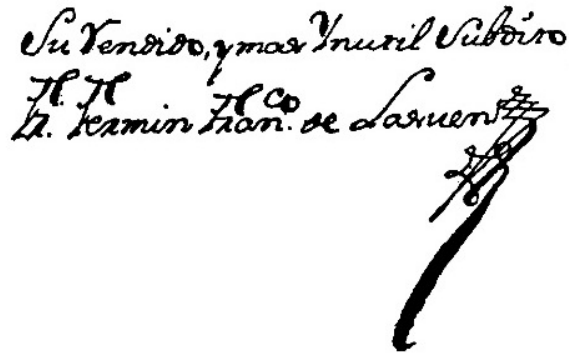 Su Rendido, y mas Ynutil Subdito
Fr. Fermin Fran.co de Lasuen